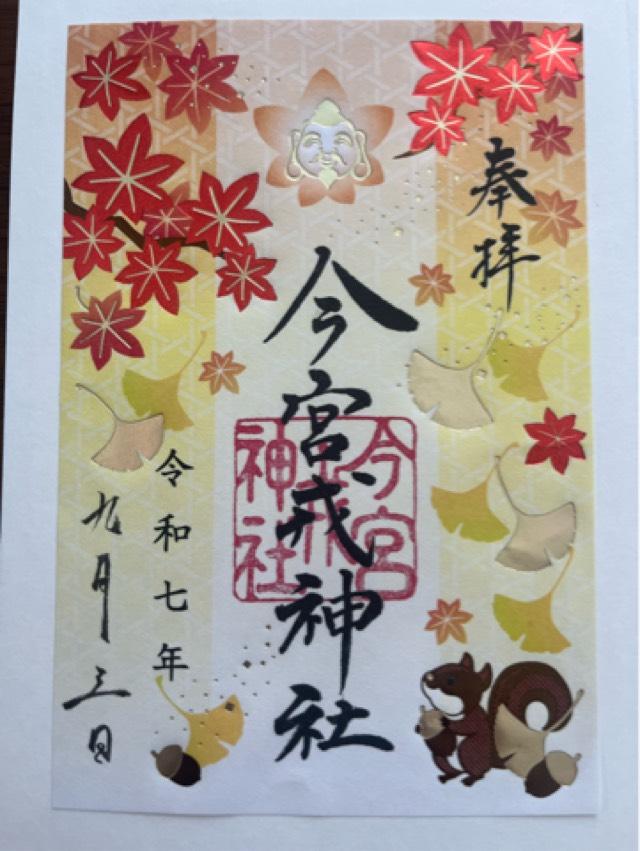 奉拝
今宮戎神社
今宮戎神社
令和七年
九月三日